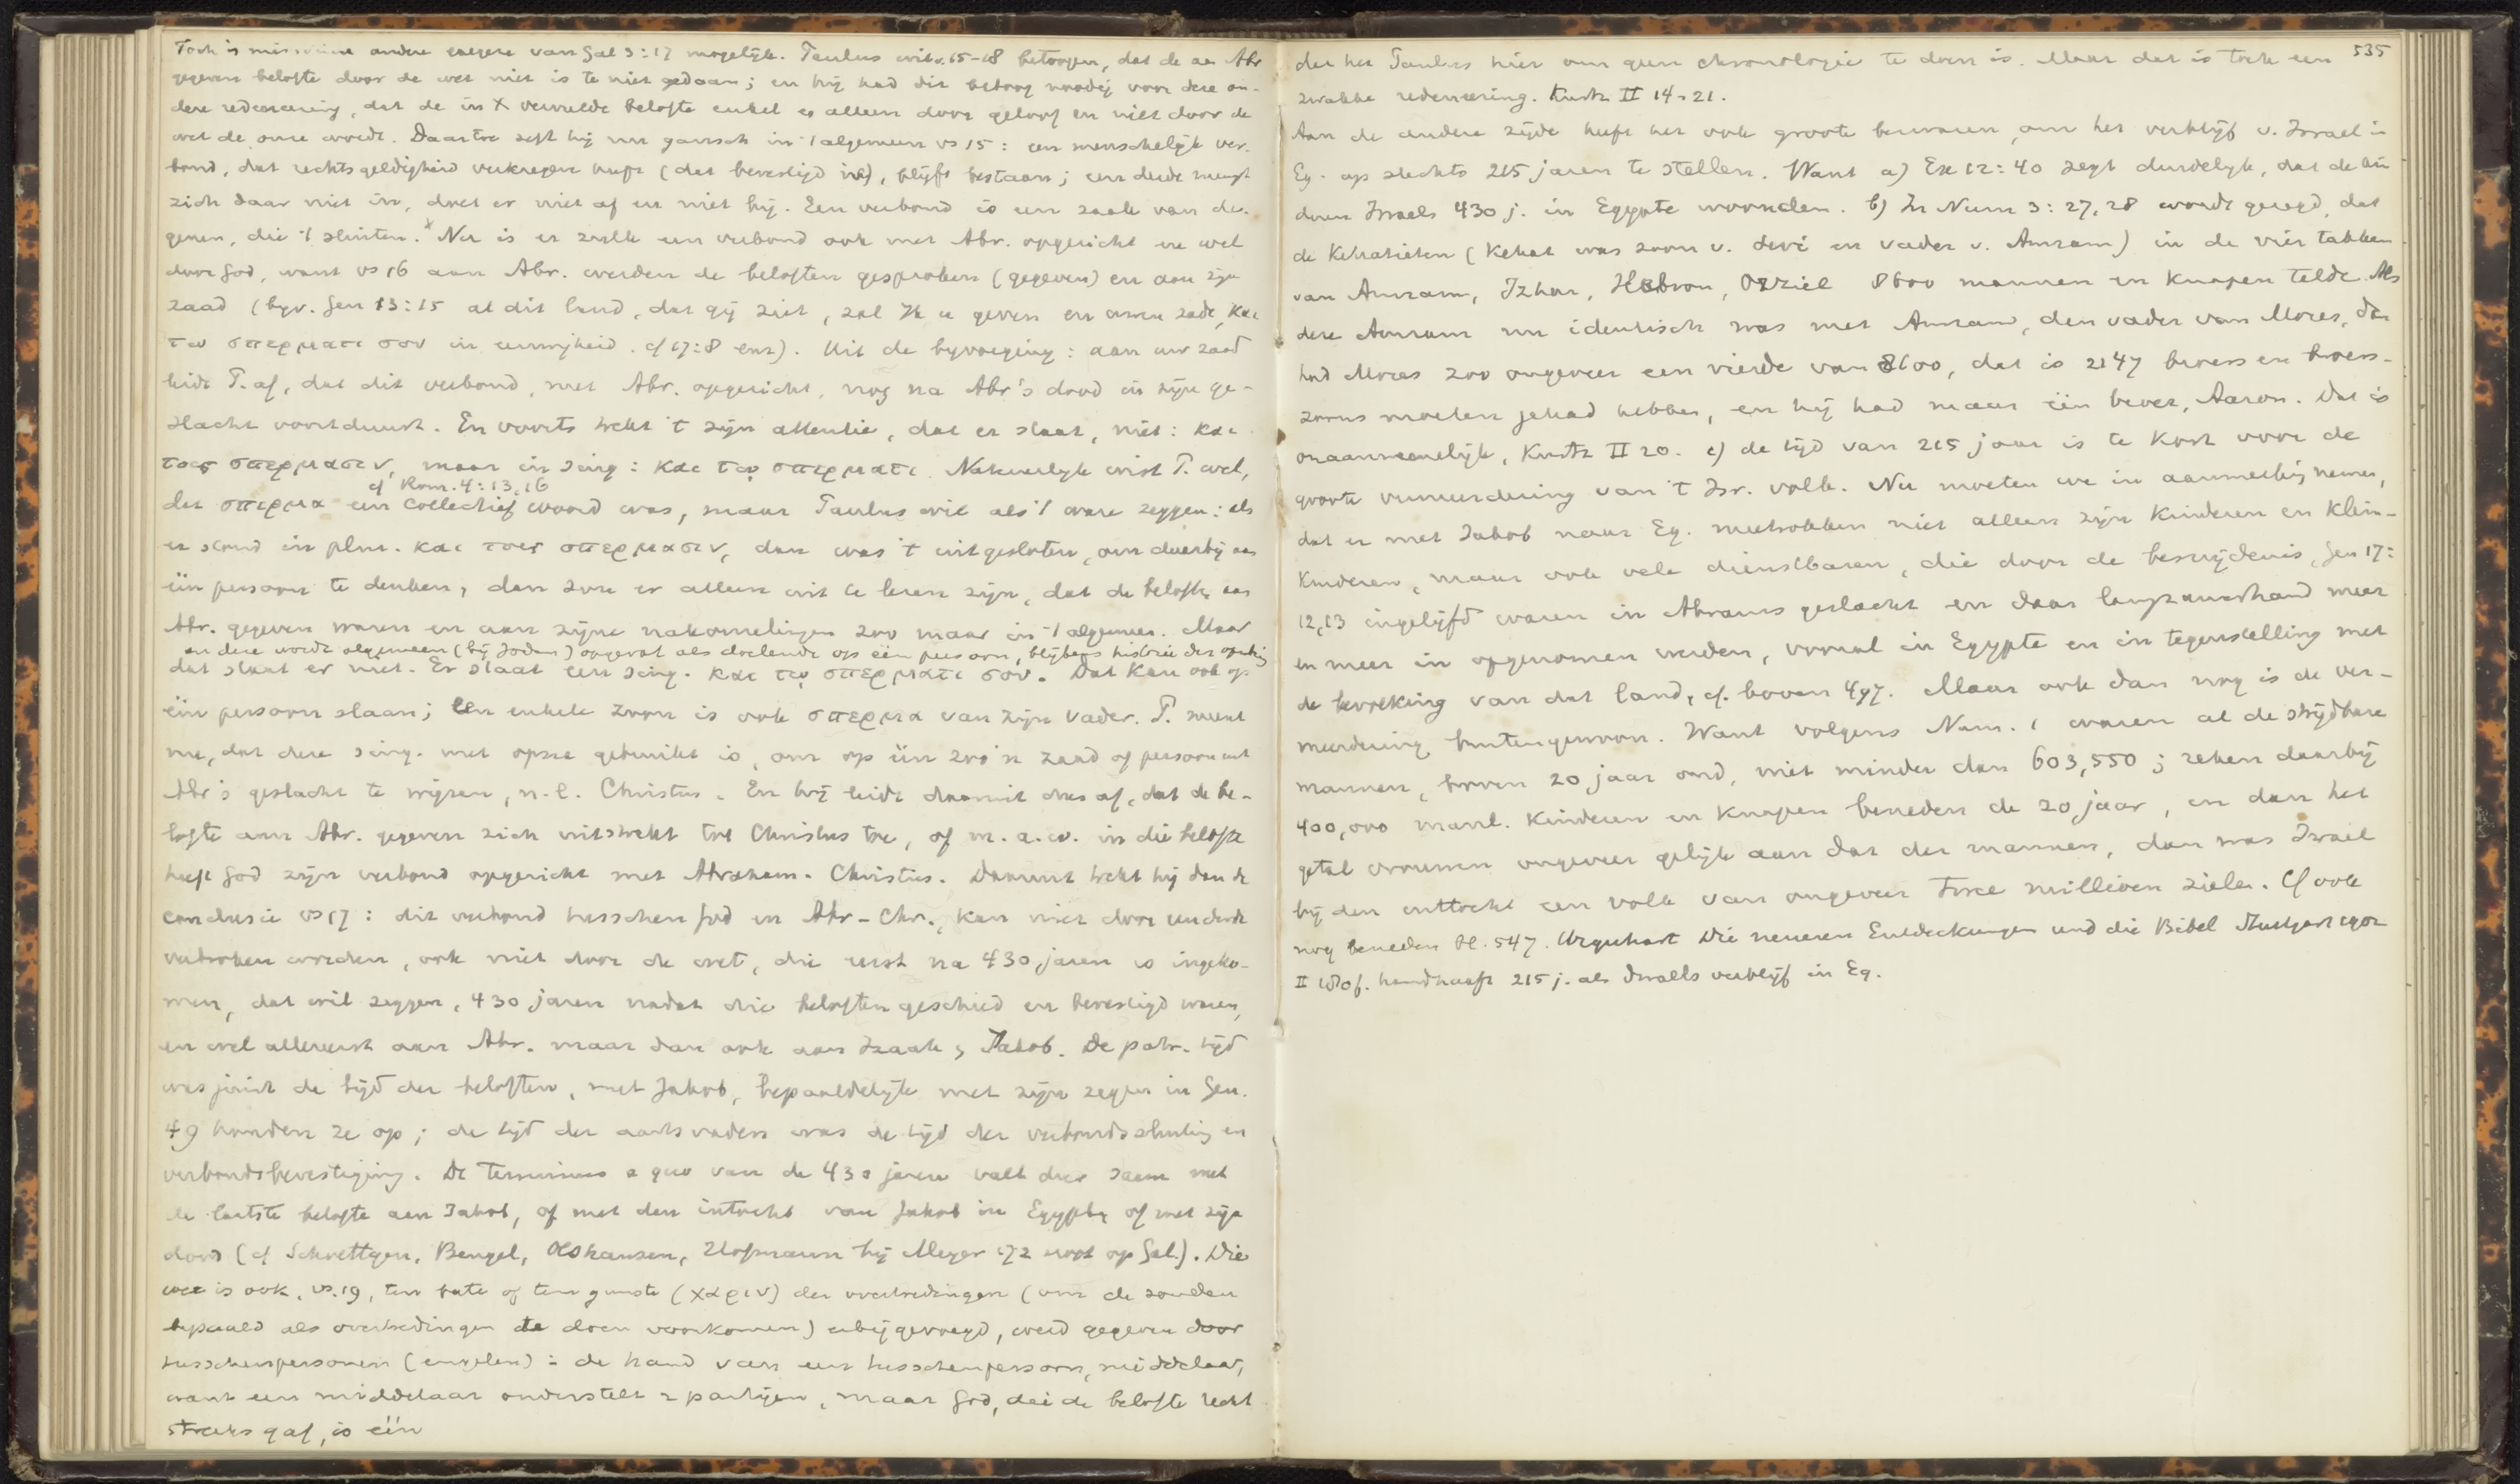 Toch is misschien andere exegese van Gal 3:17 mogelijk. Paulus wil v. 15-18 betoogen, dat de aan Abr
gegeven belofte door de wet niet is te niet gedaan; en hij had dit betoog noodig voor deze an-
dere redeneering, dat de in X vervulde belofte enkel en alleen door geloof en niet door de
wet de onze wordt. Daartoe zegt hij nu gansch in 't algemeen vs 15: een menschelijk ver-
bond, dat rechtsgeldigheid verkregen heeft (dat bevestigd is), blijft bestaan; een derde mengt
zich daar niet in, doet er niet af en niet bij. Een verbond is een zaak van de-
genen, die 't sluiten. x Nu is er zulk een verbond ook met Abr. opgericht en wel
door God, want vs 16 aan Abr. werden de beloften gesproken (gegeven) en aan zijn
zaad (bijv. Gen 13:15 al dit land, dat gij ziet, zal Ik u geven en uwen zade, και
τω σπερματι σου in eeuwigheid. cf 17:8 enz). Uit de bijvoeging: aan uw zaad
leidt P. af, dat dit verbond, met Abr. opgericht, nog na Abr's dood in zijn ge-
slacht voortduurt. En voorts trekt 't zijn attentie, dat er staat, niet: και
τοις σπερμασιν, maar in sing: και τῳ σπερματι. Natuurlijk wist P. wel,
cf Rom. 4:13,16
dat σπερμα een collectief woord was, maar Paulus wil als 't ware zeggen: als
er stond in plur. και τοις σπερμασιν, dan was 't uitgesloten, om daarbij aan
één persoon te denken, dan zou er alleen uit te lezen zijn, dat de belofte aan
Abr. gegeven waren en aan zijne nakomelingen zoo maar in 't algemeen. Maar
en deze wordt algemeen (bij Joden) opgevat als doelende op één persoon, blijkens historie der
dat staat er niet. Er staat een sing. και τῳ σπερματι σου. Dat kan ook op
één persoon slaan; een enkele zoon is ook σπερμα van zijn vader. P. meent
nu, dat deze sing. met opzet gebruikt is, om op één zoo'n zaad of persoon uit
Abr's geslacht te wijzen, n.l. Christus. En hij leidt daaruit dus af, dat de be-
lofte aan Abr. gegeven zich uitstrekt tot Christus toe, of m. a. w. in die belofte
heeft God zijn verbond opgericht met Abraham - Christus. Daaruit trekt hij dan de
conclusie vs 17: dit verbond tusschen God en Abr - Chr., kan niet door een derde
verbroken worden, ook niet door de wet, die eerst na 430 jaren is ingeko-
men, dat wil zeggen, 430 jaren nadat die beloften geschied en bevestigd waren,
en wel allereerst aan Abr. maar dan ook aan Izaak, Jakob. De patr. tijd
was juist de tijd der beloften, met Jakob, bepaaldelijk met zijn zegen in Gen.
49 houden ze op; de tijd der aartsvaders was de tijd der verbondssluiting en
verbondsbevestiging. De terminus a quo van de 430 jaren valt dus saam met
de laatste belofte aan Jakob, of met den intocht van Jakob in Egypte of met zijn
dood (cf Schoettgen, Bengel, Olshausen, Hofmann bij Meyer 172 noot op Gal.). Die
wet is ook, vs. 19, ten bate of ten gunste (χαριν) der overtredingen (om de zonden
bepaald als overtredingen te doen voorkomen) erbij gevoegd, werd gegeven door
tusschenpersonen (engelen) in de hand van een tusschenpersoon, middelaar,
want een middelaar onderstelt 2 partijen, maar God, die de belofte recht
streeks gaf, is één

535
dat het Paulus hier om geen chronologie te doen is. Maar dat is toch een
zwakke redeneering. Kurtz II 14-21.
Aan de andere zijde heeft het ook groote bezwaren, om het verblijf v. Israel in
Eg. op slechts 215 jaren te stellen. Want a) Ex 12:40 zegt duidelijk, dat de kin
deren Israels 430 j. in Egypte woonden. b) In Num 3:27,28 wordt gezegd, dat
de Kehathieten (Kehat was zoon v. Levi en vader v. Amram) in de vier takken
van Amram, Izhar, Hebron, Uzziel 8600 mannen en knapen telde. Als
deze Amram nu identisch was met Amram, den vader van Mozes, dan
had Mozes zoo ongeveer een vierde van 8600, dat is 2147 broers en broers-
zoons moeten gehad hebben, en hij had maar één broer, Aaron. Dat is
onaannemelijk, Kurtz II 20. c) de tijd van 215 jaar is te kort voor de
groote vermeerdering van 't Isr. volk. Nu moeten we in aanmerking nemen,
dat er met Jakob naar Eg. meetrokken niet alleen zijn kinderen en klein-
kinderen, maar ook vele dienstbaren, die door de besnijdenis, Gen 17:
12,13 ingelijfd waren in Abrams geslacht en daar langzamerhand meer
en meer in opgenomen werden, vooral in Egypte en in tegenstelling met
de bevolking van dat land, cf. boven 497. Maar ook dan nog is de ver-
meerdering buitengewoon. Want volgens Num. 1 waren al de strijdbare
mannen, boven 20 jaar oud, niet minder dan 603,550; reken daarbij
400,000 mannl. kinderen en knapen beneden de 20 jaar, en dan het
getal vrouwen ongeveer gelijk aan dat der mannen, dan was Israel
bij den uittocht een volk van ongeveer twee millioen zielen. Cf ook
nog beneden bl. 547. Urquhart Die neueren Entdeckungen und die Bibel Stuttgart 1902
II 180 f. handhaaft 215 j. als Israels verblijf in Eg.